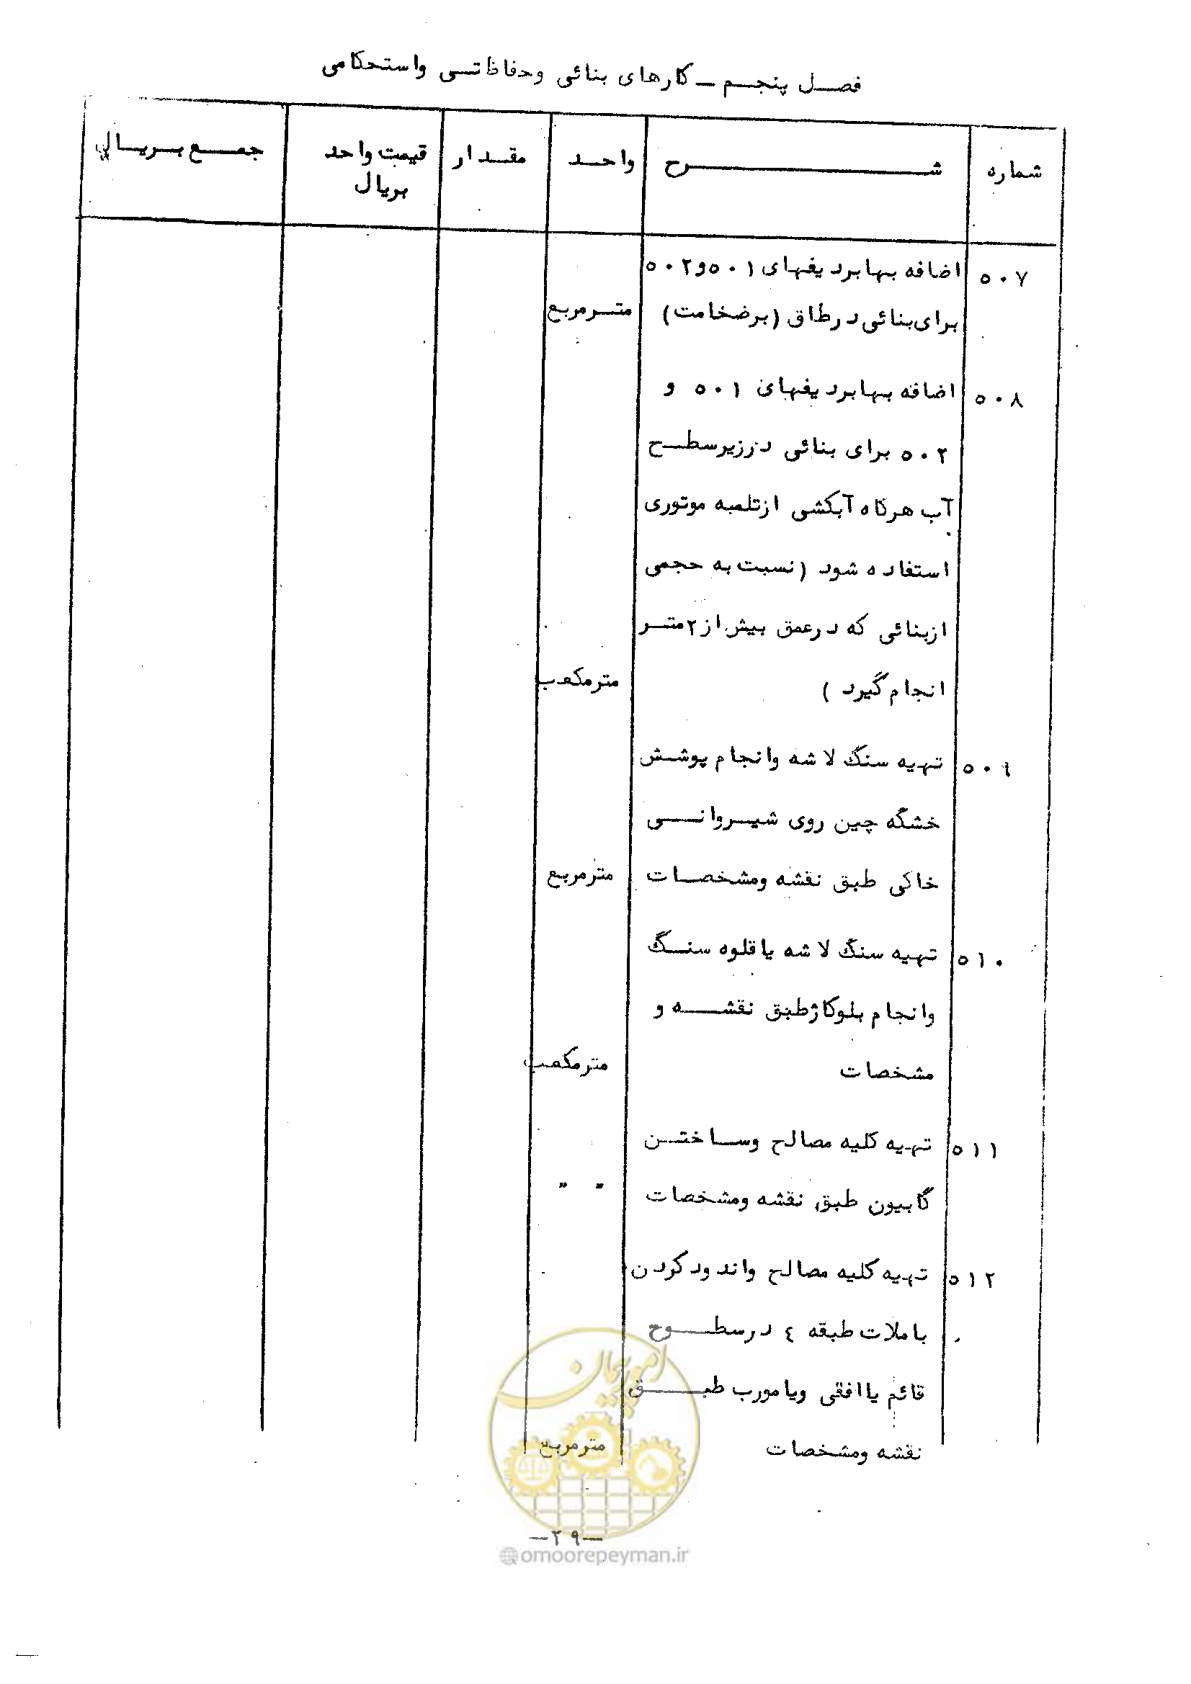 فصل پنجم - کارهای بنائی وحفاظتی واستحکامی
شماره شرح واحد مقدار قیمت واحد بریال جمع بریال
۵۰۷ اضافه بها بردیفهای ۵۰۱ و ۵۰۲
برای بنائی در طاق (برضخامت) مترمربع
۵۰۸ اضافه بها بردیفهای ۵۰۱ و
۵۰۲ برای بنائی درزیرسطح
آب هرگاه آبکشی ازتلمبه موتوری
استفاده شود (نسبت به حجمی
ازبنائی که درعمق بیش از ۲ متر
انجام گیرد) مترمکعب
۵۰۹ تهیه سنگ لاشه وانجام پوشش
خشگه چین روی شیروانی
خاکی طبق نقشه ومشخصات مترمربع
۵۱۰ تهیه سنگ لاشه یاقلوه سنگ
وانجام بلوکاژ طبق نقشه و
مشخصات مترمکعب
۵۱۱ تهیه کلیه مصالح وساختن
گابیون طبق نقشه ومشخصات " "
۵۱۲ تهیه کلیه مصالح واندودکردن
باملات طبقه ٤ درسطوح
قائم یاافقی ویامورب طبق
نقشه ومشخصات مترمربع
امور پیمان
-۲۹-
@omoorepeyman.ir